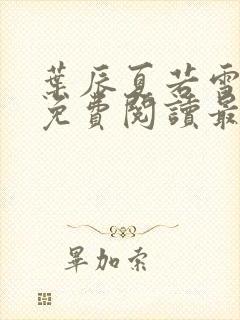 葉辰夏若雪
免費閱讀最
畢加索